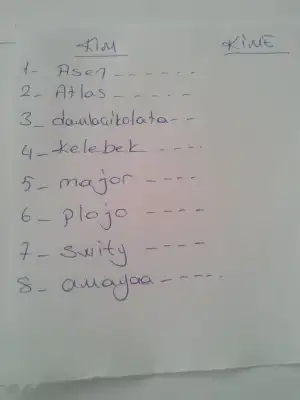 KİM KİME
1- Asen ------
2- Atlas -----
3- damlacikolata--
4- kelebek ----
5- major ----
6- plojo ----
7- swity ----
8- amayaa -----